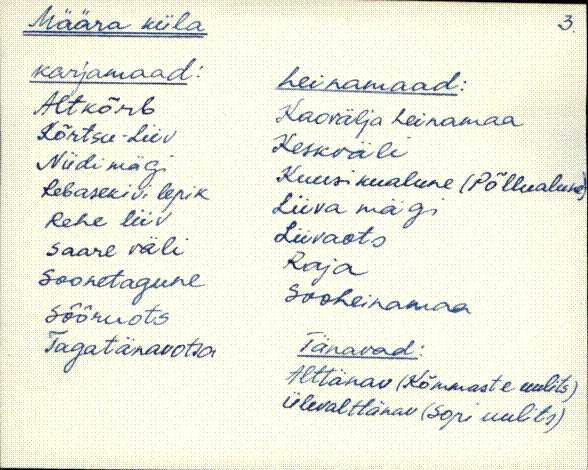 Määra küla
3.
karjamaad:
Altkõrb
Kõrtsu-Liiv
Niidi mägi
Rebasekivi lepik
Rehe liiv
Saare väli
Soonetagune
Sõõruots
Tagatänavotsa
heinamaad:
Kaovälja heinamaa
Keskväli
Kuusikualune (Põllualune)
Liiva mägi
Liivaots
Raja
Sooheinamaa
Tänavad:
Alttänav (Kõmmaste uulits)
Ülevalttänav (Sopi uulits)